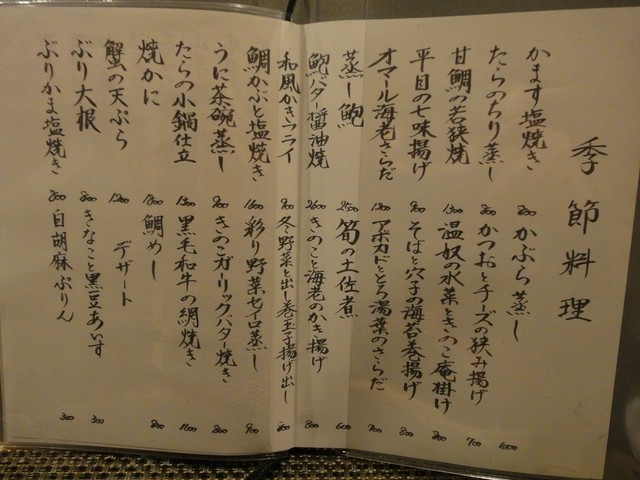 季節料理
かます塩焼き 800
たらのちり蒸し 800
甘鯛の若狭焼 1300
平目の七味揚げ 900
オマール海老さらだ 1200
蒸し鮑 2500
鮑バター醤油焼 2600
和風かきフライ 900
鯛かぶと塩焼き 1600
うに茶碗蒸し 900
たらの小鍋仕立 1300
焼かに 1800
蟹の天ぷら 1200
ぶり大根 800
ぶりかま塩焼き 800
かぶら蒸し 1000
かつおとチーズの挟み揚げ 700
温奴の水菜ときのこ庵掛け 800
そばと穴子の海苔巻揚げ 800
アボカドととろ湯葉のさらだ 900
筍の土佐煮 600
きのこと海老のかき揚げ 800
冬野菜と出し巻玉子揚げ出し 800
彩り野菜セイロ蒸し 900
きのこガーリックバター焼き 800
黒毛和牛の網焼き 1600
鯛めし 800
デザート
きなこと黒豆あいす 300
白胡麻ぷりん 300